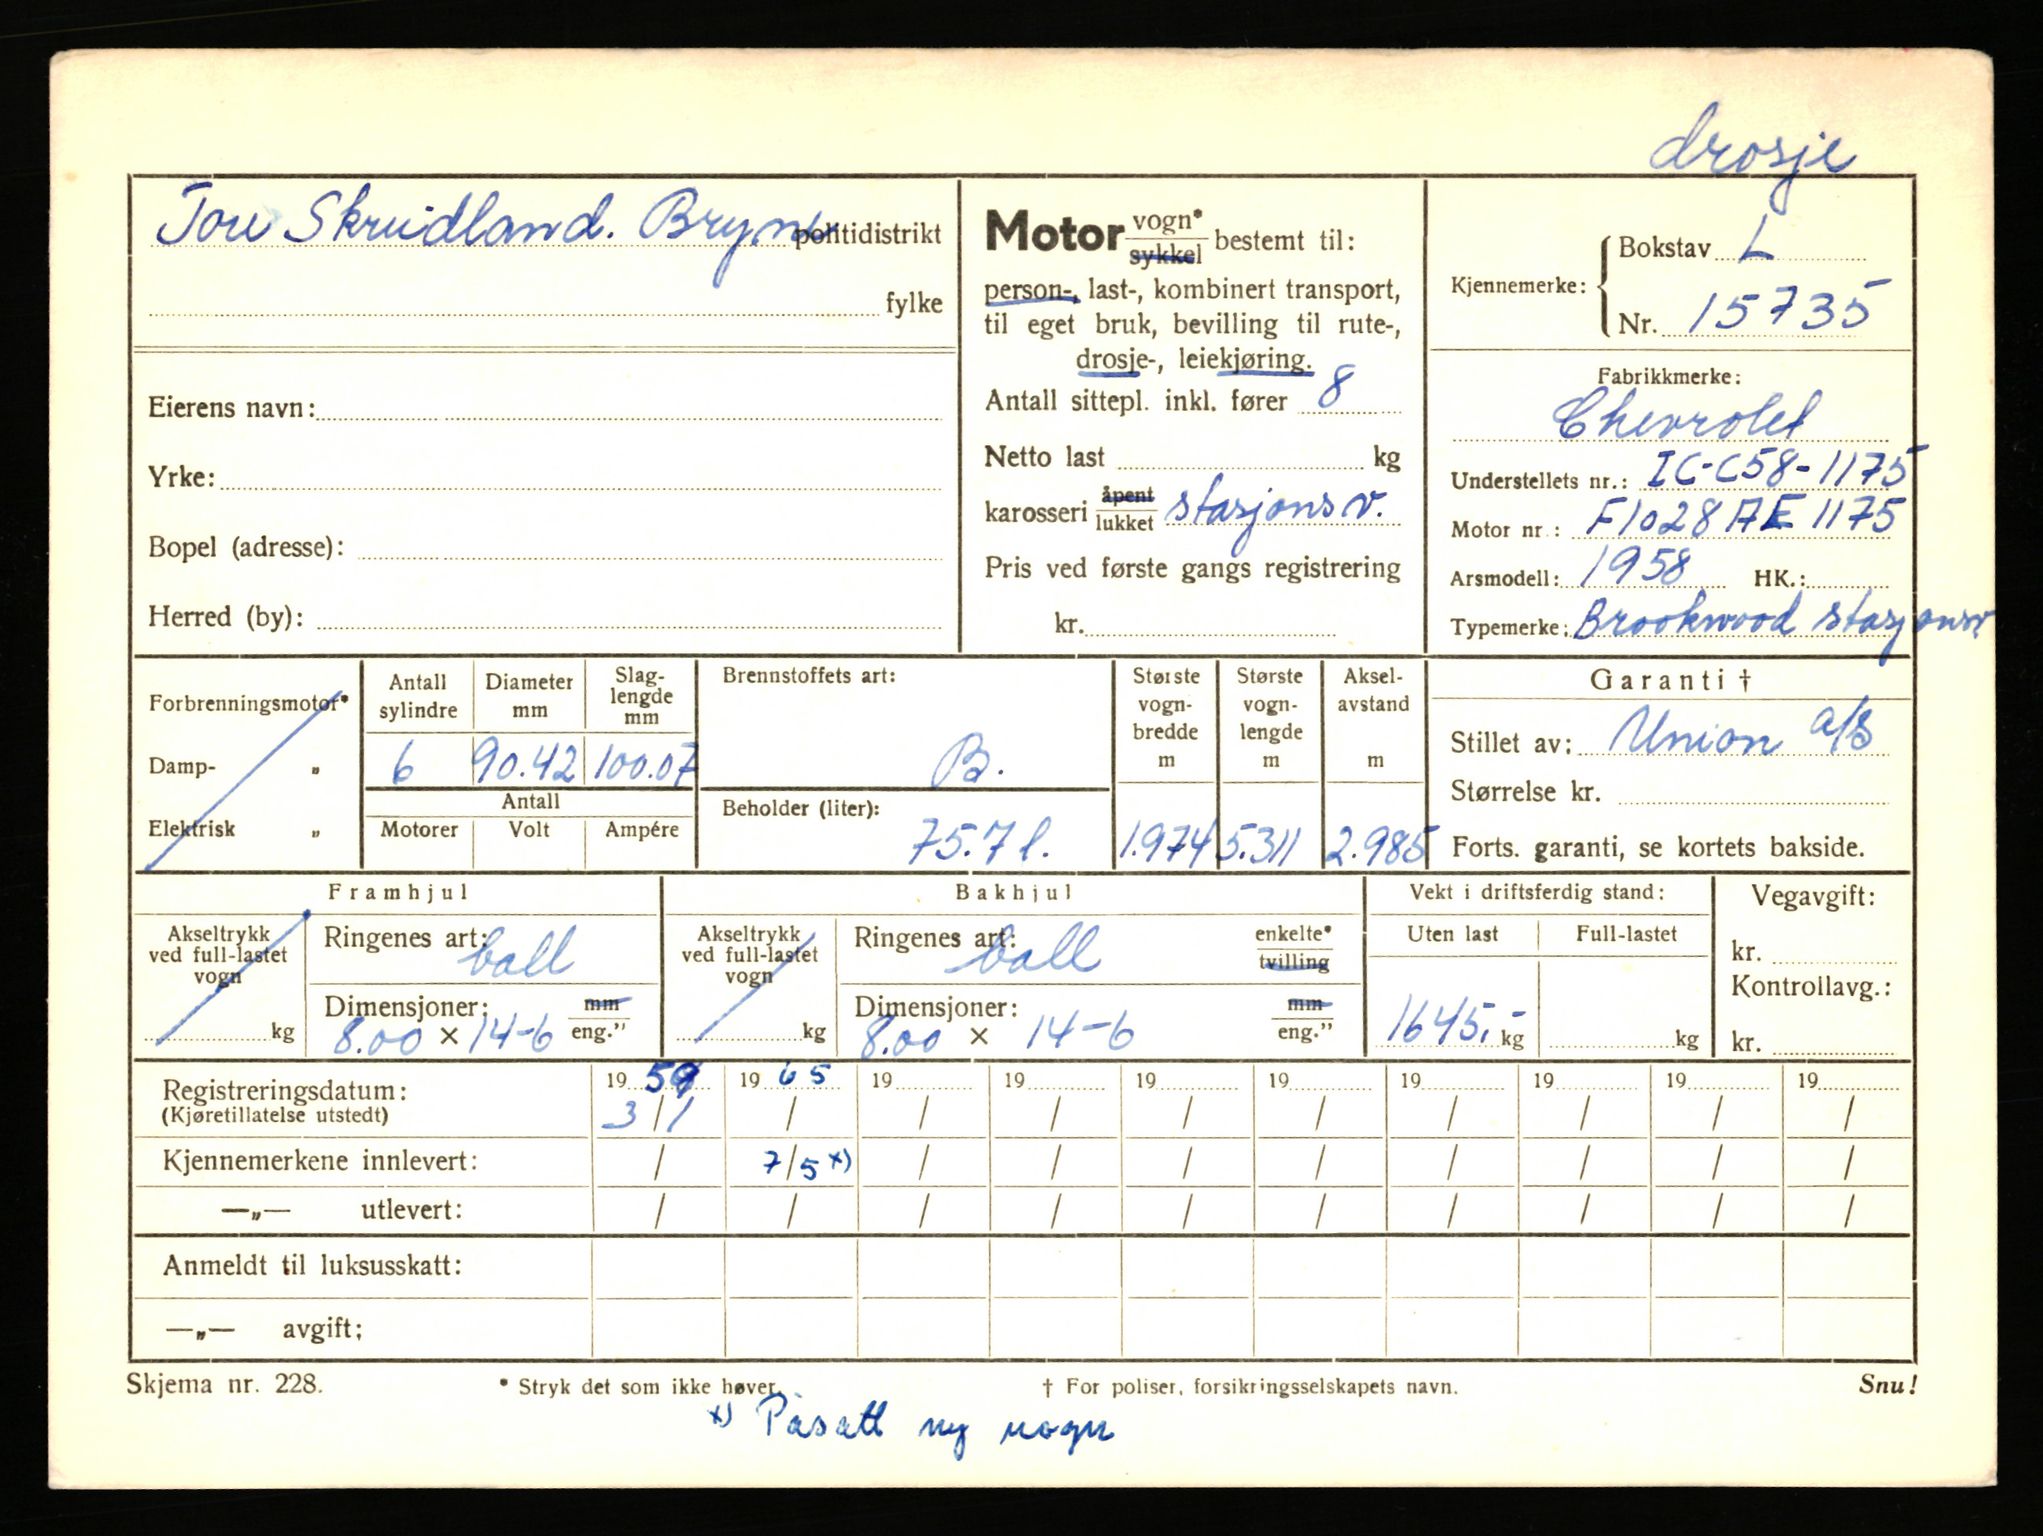 drosje
Tore Skrudland. Bryne politidistrikt
fylke
Eierens navn:
Yrke:
Bopel (adresse):
Herred (by):
Motor vogn* sykkel bestemt til:
person-, last-, kombinert transport,
til eget bruk, bevilling til rute-,
drosje-, leiekjøring.
Antall sittepl. inkl. fører 8
Netto last kg
karosseri åpent lukket stasjonsv.
Pris ved første gangs registrering
kr.
Kjennemerke: Bokstav L
Nr. 15735
Fabrikkmerke:
Chevrolet
Understellets nr.: IC-C58-1175
Motor nr.: F1028AE1175
Arsmodell: 1958 HK.:
Typemerke: Brookwood stasjonsv.
Forbrenningsmotor*
Damp- „
Elektrisk „
Antall sylindre
Diameter mm
Slag-lengde mm
6 90.42 100.07
Antall
Motorer Volt Ampére
Brennstoffets art:
B.
Beholder (liter):
75.7 l.
Største vogn-bredde m
Største vogn-lengde m
Aksel-avstand m
1.974 5.311 2.985
Garanti †
Stillet av: Union A/S
Størrelse kr.
Forts. garanti, se kortets bakside.
Framhjul
Akseltrykk
ved full-lastet
vogn
kg
Ringenes art: ball
Dimensjoner: mm
8.00 × 14-6 eng."
Bakhjul
Akseltrykk
ved full-lastet
vogn
kg
Ringenes art: ball
enkelte*
tvilling
Dimensjoner: mm
8.00 × 14-6 eng."
Vekt i driftsferdig stand:
Uten last Full-lastet
1645,- kg kg
Vegavgift:
kr.
Kontrollavg.:
kr.
Registreringsdatum: 19 59 19 65 19 19 19 19 19 19 19 19
(Kjøretillatelse utstedt) 3/1 / / / / / / / / /
Kjennemerkene innlevert: / 7/5 x) / / / / / / / /
—„— utlevert: / / / / / / / / / /
Anmeldt til luksusskatt:
—„— avgift:
Skjema nr. 228. * Stryk det som ikke høver. † For poliser, forsikringsselskapets navn. Snu!
x) Påsatt ny vogn